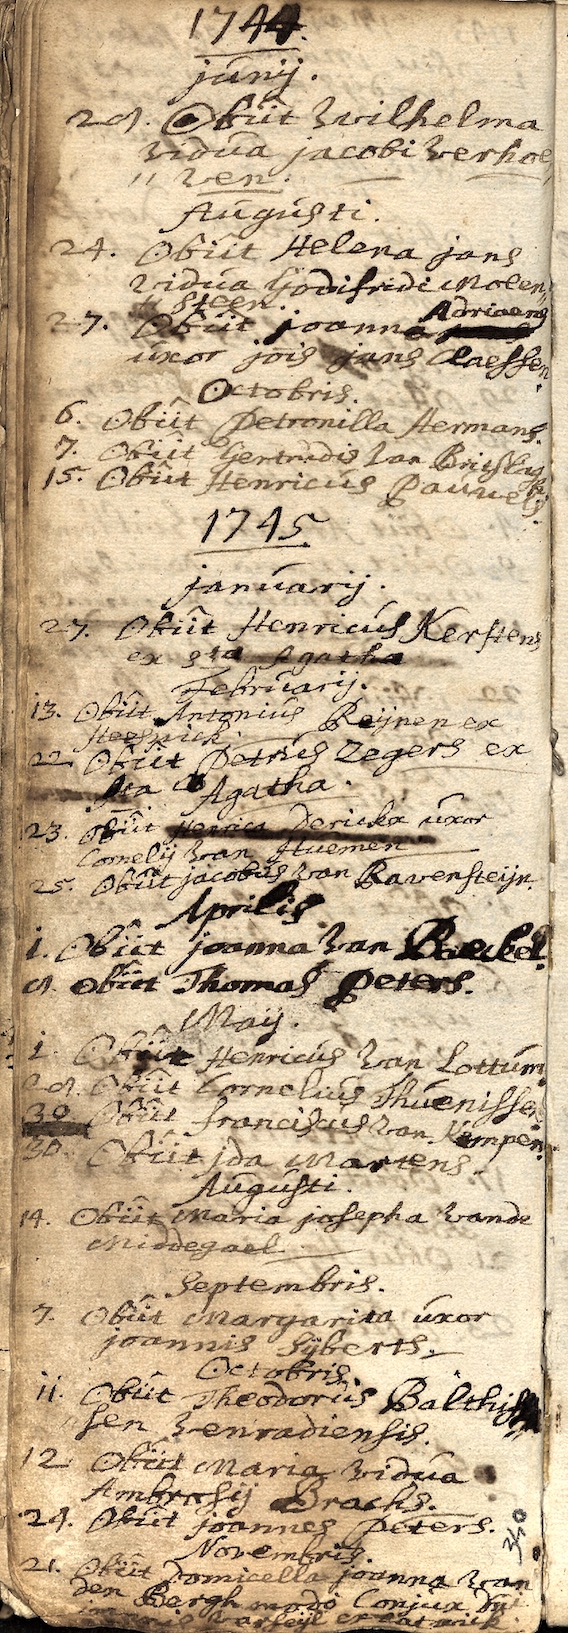 1744.
junij.
29. Obiit Wilhelma
vidua jacobi verhoe„
„ven.
Augusti.
24. Obiit Helena jans
vidua Godifridi Molen„
„steen.
27. Obiit joanna Adriaens
uxor jois jans Claessen
Octobris.
6. Obiit Petronilla Hermans.
7. Obiit Gertrudis van
15. Obiit Henricus Pauwels.
1745
januarij.
27. Obiit Henricus Kerstens
ex sta Agatha
Februarij.
13. Obiit Antonius Reijnen ex
Heeswick.
22. Obiit Petrus Zegers ex
sta Agatha.
23. Obiit Henrica Derickx uxor
Cornelij van Huemen
25. Obiit jacobus van Ravensteijn.
Aprilis
1. Obiit joanna van Boeckel.
9. Obiit Thomas Peters.
Maij.
1. Obiit Henricus van Lottum
29. Obiit Cornelius Thuenissen
30 Obiit franciscus van Kempen
30. Obiit jda Martens.
Augusti.
14. Obiit Maria josepha vande
Middegael
Septembris.
7. Obiit Margarita uxor
joannis Sijberts.
Octobris
11. Obiit Theodorus Balthis
sen venradiensis.
12 Obiit Maria vidua
Ambrosij Brachs.
24. Obiit joannes Peters.
Novembris.
21. Obiit Domicella joanna van
den Bergh modo Conjux Dni
340